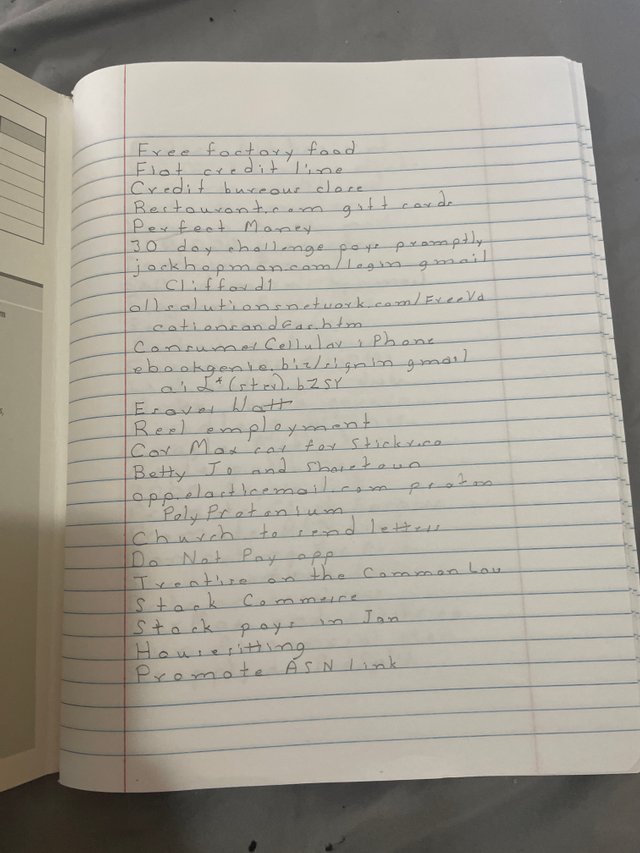 Free factory food
Flat credit line
Credit bureous close
Restaurant.com gift cards
Perfect Money
30 day challenge pays promptly
jackhopman.com/login gmail
Clifford1
allsolutionsnetwork.com/FreeVa
cationsandGas.htm
Consumer Cellular iPhone
ebookgenie.biz/signin gmail
(star).bZSY
Watt
Reel employment
Car Max car for Stickr.co
Betty Jo and
app.elasticemail.com proton
PolyProtonium
Church to send letters
Do Not Pay app
Treatise on the Common Law
Stack Commerce
Stock pays in Jan
Housesitting
Promote ASN link